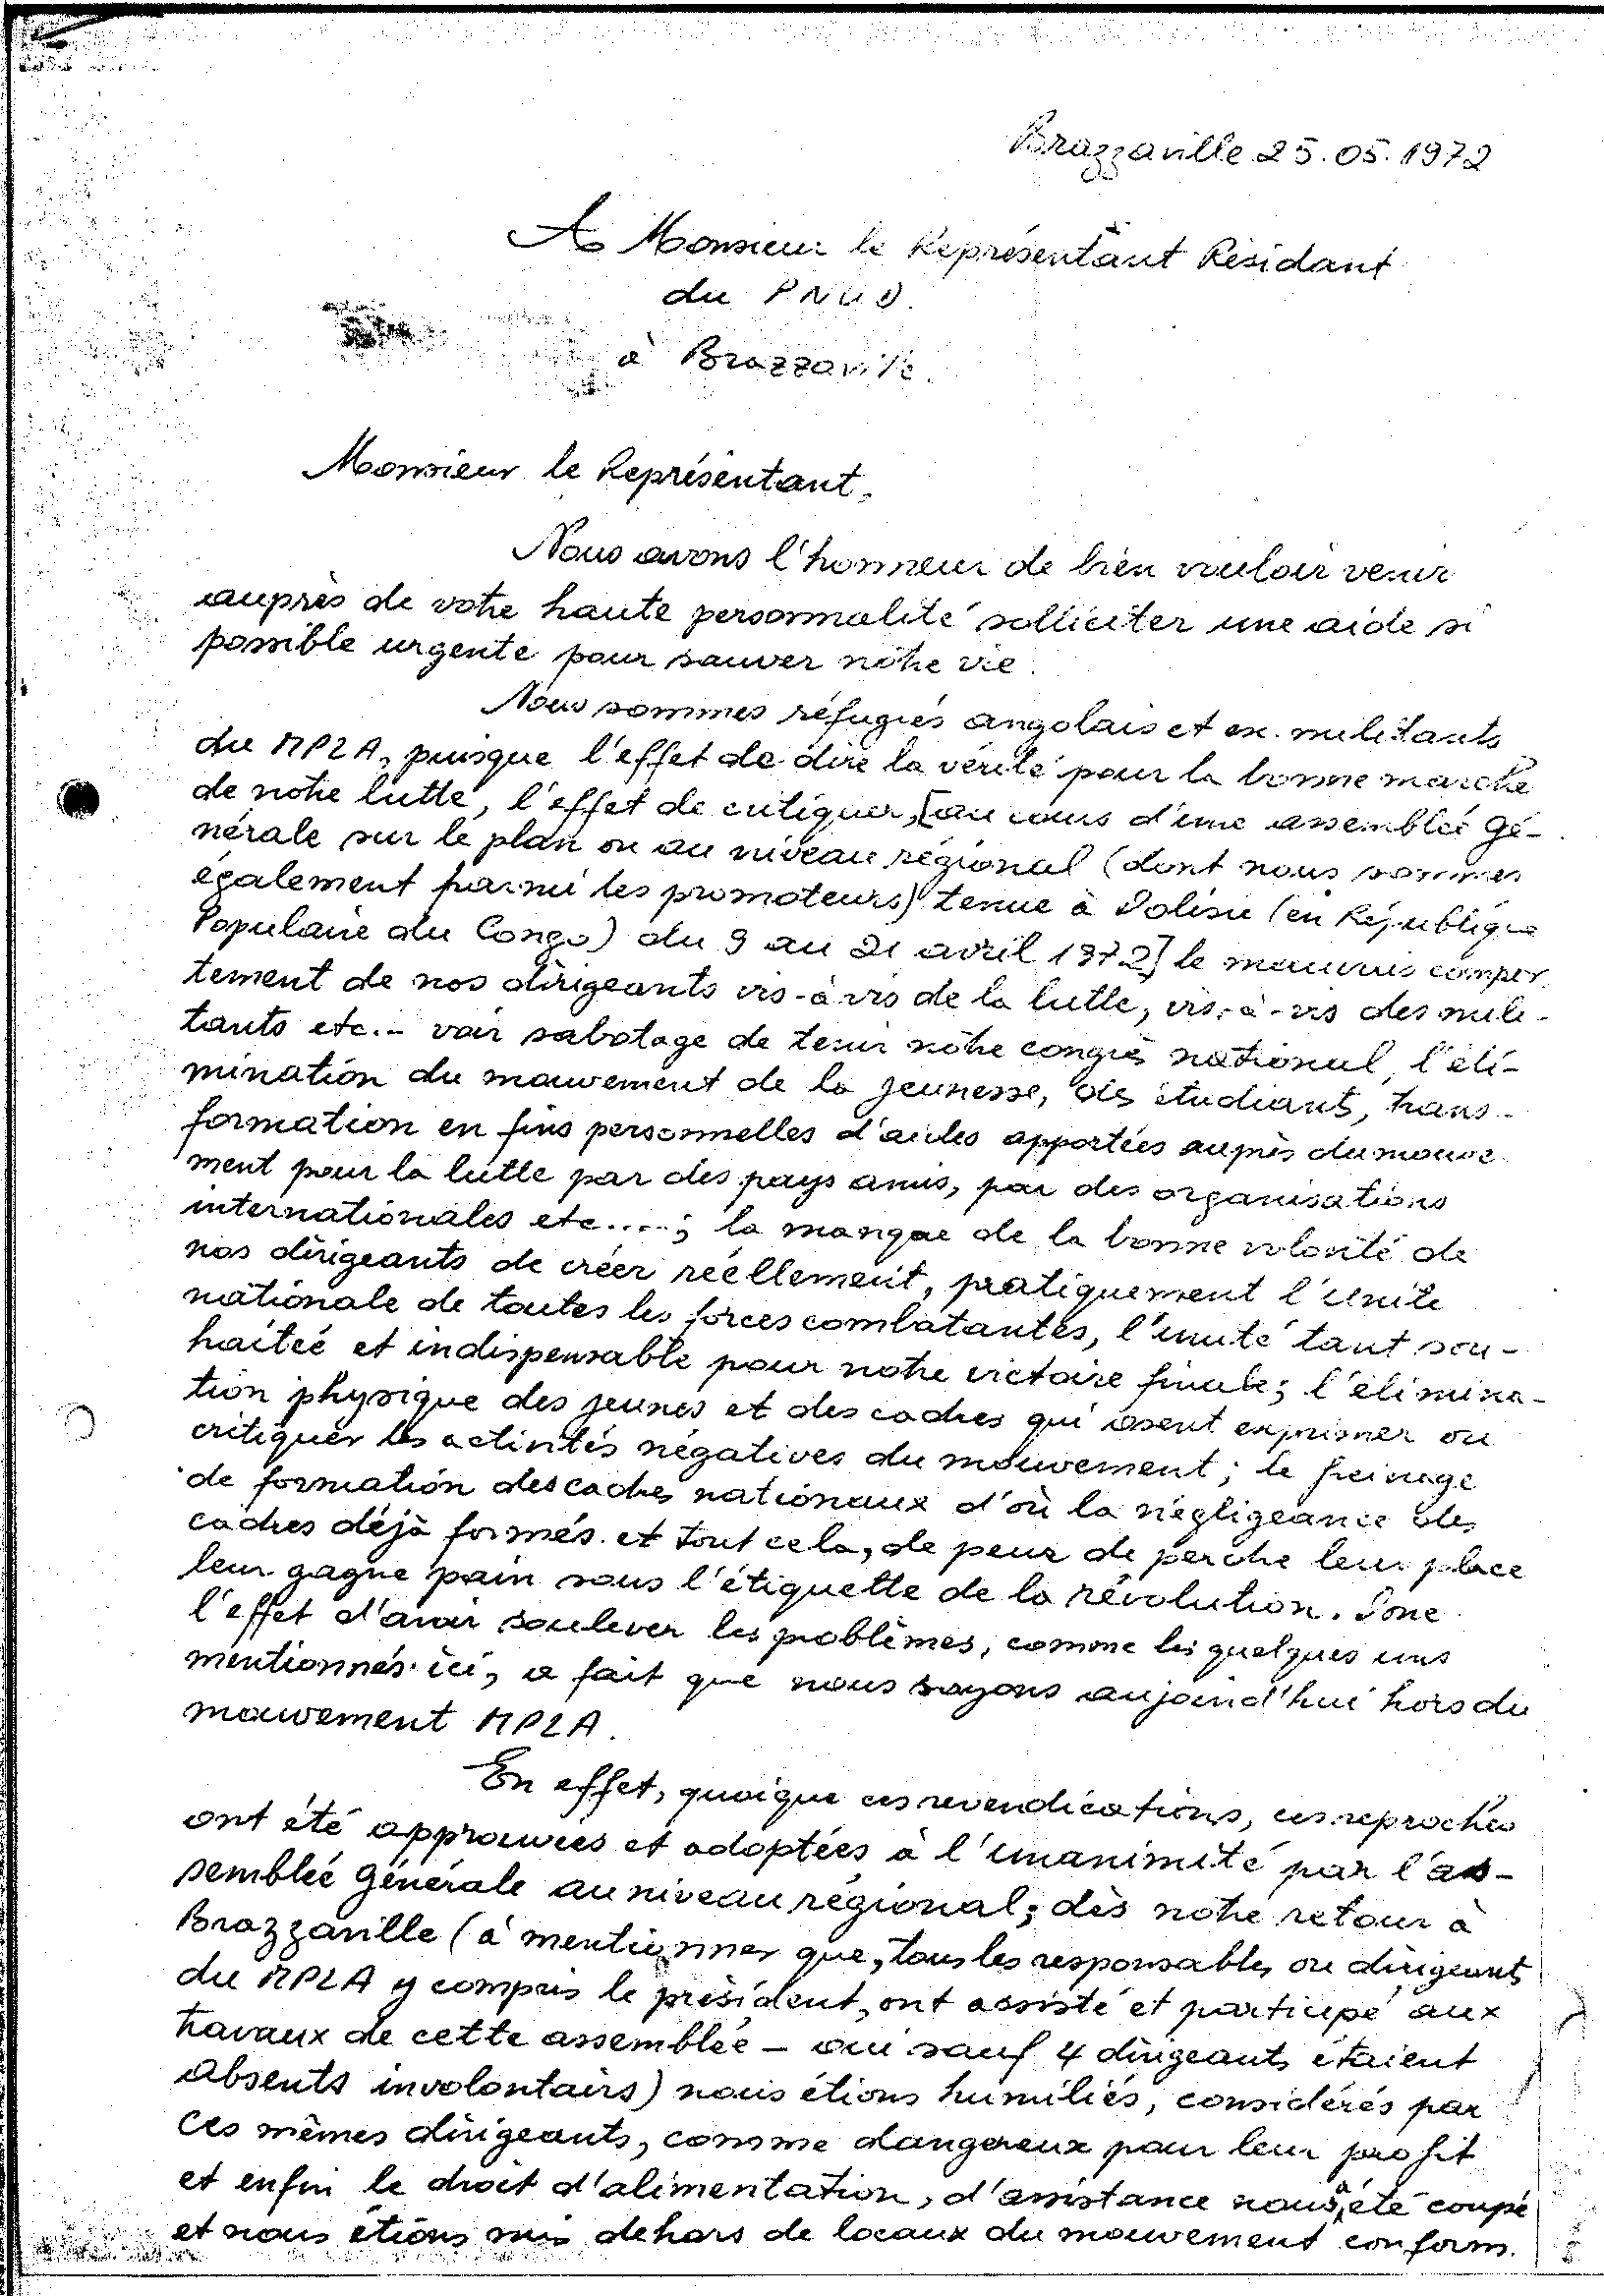 Brazzaville 25.05.1972
A Monsieur le Représentant Résidant
du PNUD.
à Brazzaville.
Monsieur le Représentant,
Nous avons l'honneur de bien vouloir venir
auprès de votre haute personnalité solliciter une aide si
possible urgente pour sauver notre vie.
Nous sommes réfugiés angolais et ex. militants
du MPLA, puisque l'effet de dire la vérité pour la bonne marche
de notre lutte, l'effet de critiquer, [au cours d'une assemblée gé-
nérale sur le plan ou au niveau régional (dont nous sommes
également parmi les promoteurs) tenue à Dolisie (en République
Populaire du Congo) du 9 au 21 avril 1972] le mauvais compor
tement de nos dirigeants vis-à-vis de la lutte, vis-à-vis des mili-
tants etc.. voir sabotage de tenir notre congrès national, l'éli-
mination du mouvement de la jeunesse, des étudiants, trans-
formation en fins personnelles d'aides apportées auprès du mouve
ment pour la lutte par des pays amis, par des organisations
internationales etc....; la manque de la bonne volonté de
nos dirigeants de créer réellement, pratiquement l'unité
nationale de toutes les forces combatantes, l'unité tant sou-
haitée et indispensable pour notre victoire finale; l'élimina-
tion physique des jeunes et des cadres qui osent exprimer ou
critiquer les activités négatives du mouvement; le freinage
de formation des cadres nationaux d'où la négligeance des
cadres déjà formés. et tout cela, de peur de perdre leur place
leur gagne pain sous l'étiquette de la révolution. Donc
l'effet d'avoir soulever les problèmes, comme les quelques uns
mentionnés ici, a fait que nous soyons aujourd'hui hors du
mouvement MPLA.
En effet, quoique ces revendications, ces reproches
ont été approuvées et adoptées à l'unanimité par l'as-
semblée générale au niveau régional; dès notre retour à
Brazzaville (à mentionner que, tous les responsables ou dirigeants
du MPLA y compris le président, ont assisté et participé aux
travaux de cette assemblée - oui sauf 4 dirigeants étaient
absents involontairs) nous étions humiliés, considérés par
ces mêmes dirigeants, comme dangereux pour leur profit
et enfin le droit d'alimentation, d'assistance nous a été coupé
et nous étions mis dehors de locaux du mouvement conform.